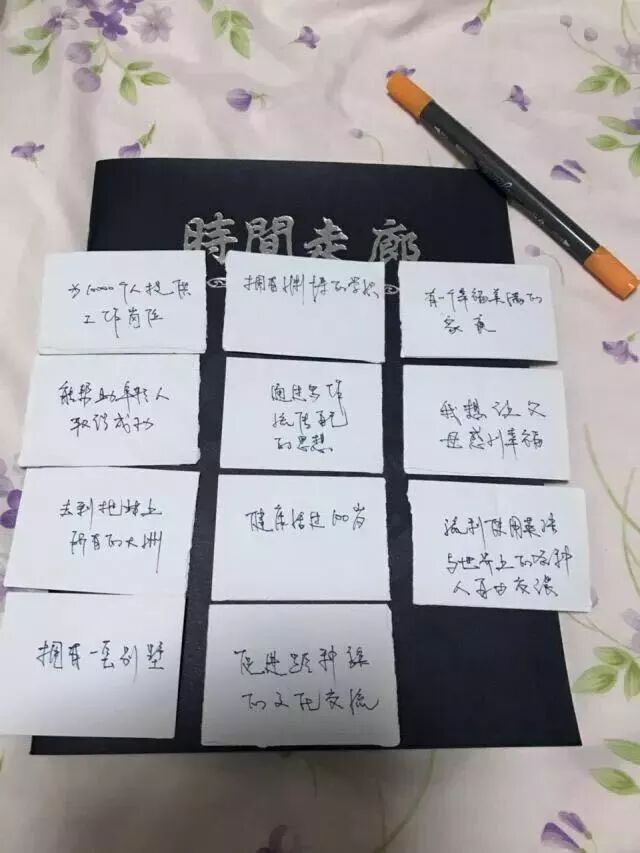 時間走廊
为10000个人提供
工作岗位
拥有渊博的学识
有一个幸福美满的
家庭
能帮助年轻人
取得成功
通过写作
流传自己
的思想
我想让父
母感到幸福
去到地球上
所有的大洲
健康活过100岁
流利使用英语
与世界上的各种
人自由交流
拥有一套别墅
促进跨种族
的文化交流